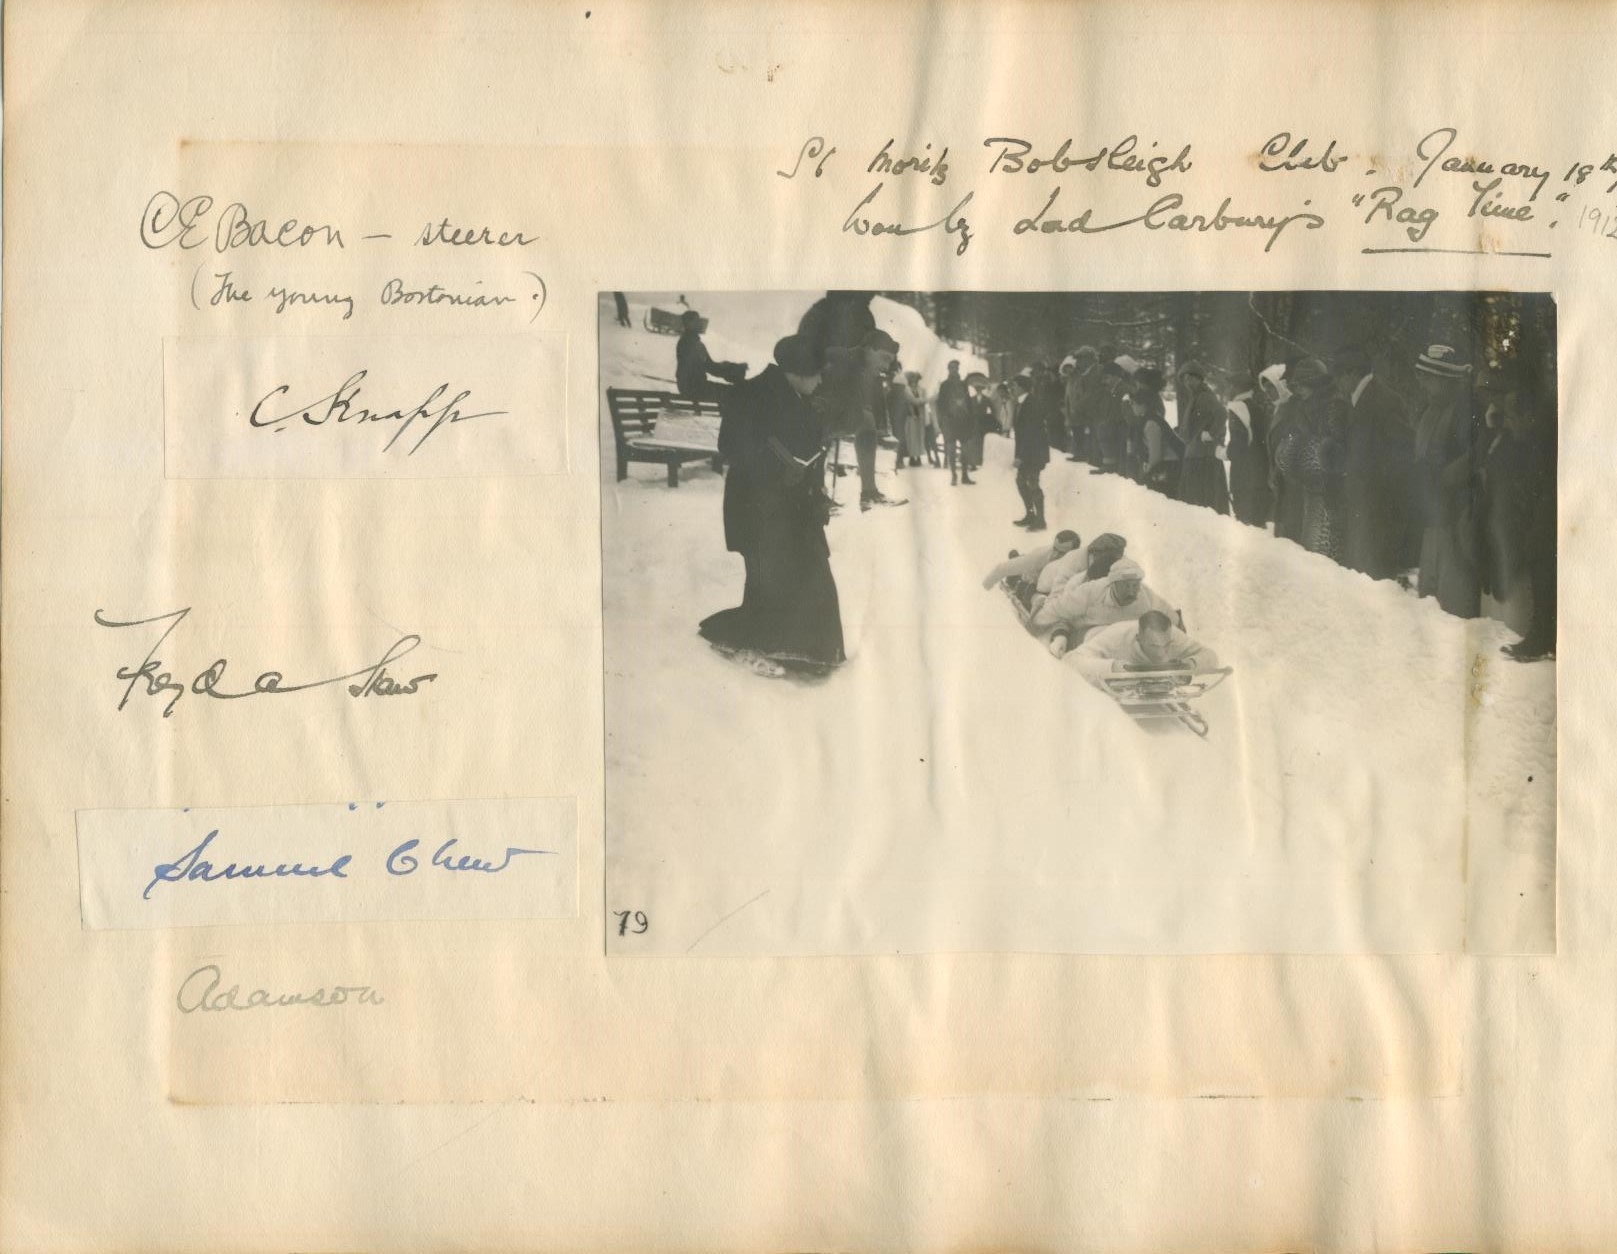 St Moritz Bobsleigh Club. January 18th
Won by Lad Carbury's "Rag Time". 1912
CE Bacon – steerer
(The young Bostonian.)
C. Knapp
Shaw
Samuel Chew
79
Adamson